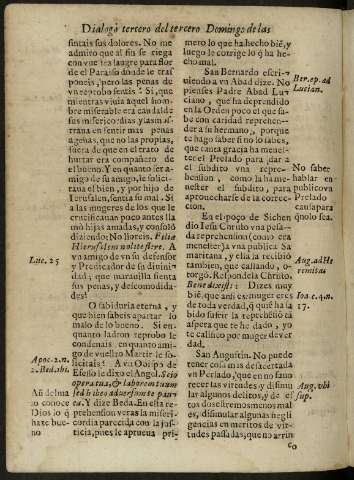 Dialogo tercero del tercero Domingo de las
sintais sus dolores. No me
admito que al fin se riega
con vuestra sangre para flor
de el Paraiso donde le tras
poneis, pero las penas de
vn reprobo sentis? Si, que
mientras viuia aquel hom-
bre miserable era caudal de
sus misericordias y las mos-
trana en sentir mas penas
agenas, que no las propias,
fuera de que en el trato de
hurtar era compañero de
el bueno. Y en quanto ser a-
migo de su amigo, le solici-
tara el bien, y por hijo de
Ierusalen, sentia su mal. Si
a las mugeres de los que le
crucificauan poco antes lla
mò hijas amadas, y consolò
diziendo: No lloreis. Filiæ
Hierusalem nolite flere. A
vn amigo de vn su defensor
y Predicador de su diuini-
dad; que marauilla sienta
sus penas, y descomodida-
des!
O sabiduria eterna, y
que bien sabeis apartar lo
malo de lo bueno. Si en
quanto ladron reprobo le
condenais en quanto ami-
go de vuestro Martir le so-
licitais! A vn Obispo de
Efeso le dixo el Angel. Scio
opera tua, & laborem tuum
sed habeo aduersum te pau-
ca. Y dize Beda. En esta re-
prehension veras la miseri-
cordia parecida con la jus-
ticia, pues le aprueua pri-
Luc. 23
Apoc. 2. n.
2. Bed. ibi.
Añ del ma
lo conoce
Dios lo q̃
haze bue-
no
mero lo que ha hecho biẽ, y
luego le corrige lo q̃ ha he-
cho mal.
San Bernardo escri-
uiendo a vn Abad dize. No
pienses Padre Abad Lu-
ciano, que ha deprendido
en la Orden poco el que sa-
be con caridad reprehen-
der a su hermano, porque
te hago saber si no lo sabes,
que cauta gracia ha menes-
ter el Prelado para dar a
el subdito vna repre-
hension, como la ha me-
nester el subdito, para
aprouecharse de la correc-
cion.
En el poço de Sichen
dio Iesu Christo vna pesa-
da reprehension (como era
menester) a vna publica Sa
maritana, y ella la recibiò
tambien, que callando, o-
torgò. Respondela Christo.
Bene dixisti: Dizes muy
biẽ, que aun es muger eres
de toda verdad, q̃ quiẽ ha sa
bido sufrir la reprehensiõ tã
aspera que te he dado, yo
te califico por muger de ver
dad.
San Augustin. No puede
tener cosa mas desacertada
vn Perlado, que en no fauo
recer las virtudes, y disimu
lar algunos delitos, y de es
tos dos estremos menos mal
es, disimular algunas negli
gencias en meritos de vir-
tudes passadas, que no arrin
co
Ber. ep. ad
Lucian.
No saber
hablar en
publico vn
Prelado
causa para
q̃ no lo sea.
Aug. ad He
remitas
Ioa c. 4. n.
17.
Aug. vbi
sup.